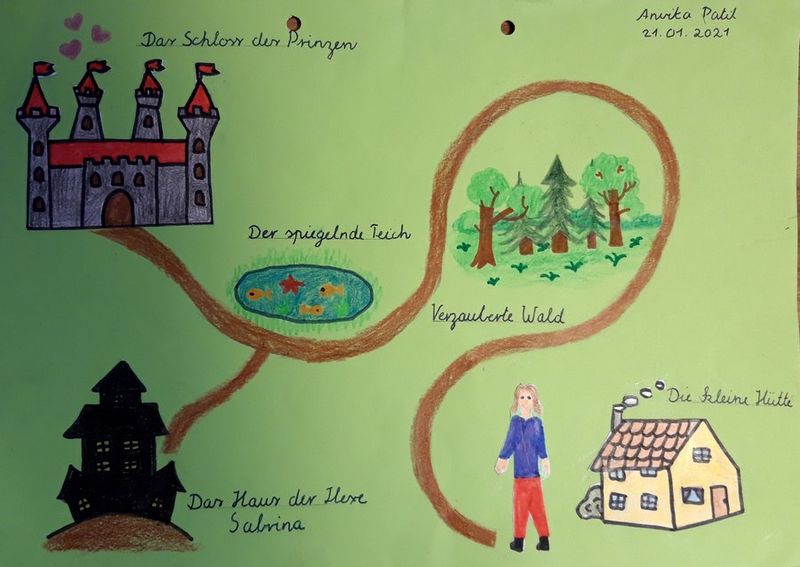 Das Schloss des Prinzen
Anvita Patil
21.01.2021
Der spiegelnde Teich
Verzauberte Wald
Die kleine Hütte
Das Haus der Hexe
Sabrina